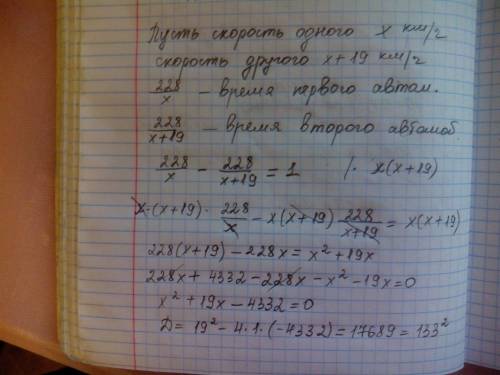 Пусть скорость одного x км/г
скорость другого x+19 км/г
228/x – время первого автом.
228/(x+19) – время второго автомоб
228/x - 228/(x+19) = 1 /· x(x+19)
x·(x+19)· 228/x - x(x+19) 228/(x+19) = x(x+19)
228(x+19) - 228x = x² + 19x
228x + 4332 - 228x - x² - 19x = 0
x² + 19x - 4332 = 0
D = 19² - 4·1·(-4332) = 17689 = 133²